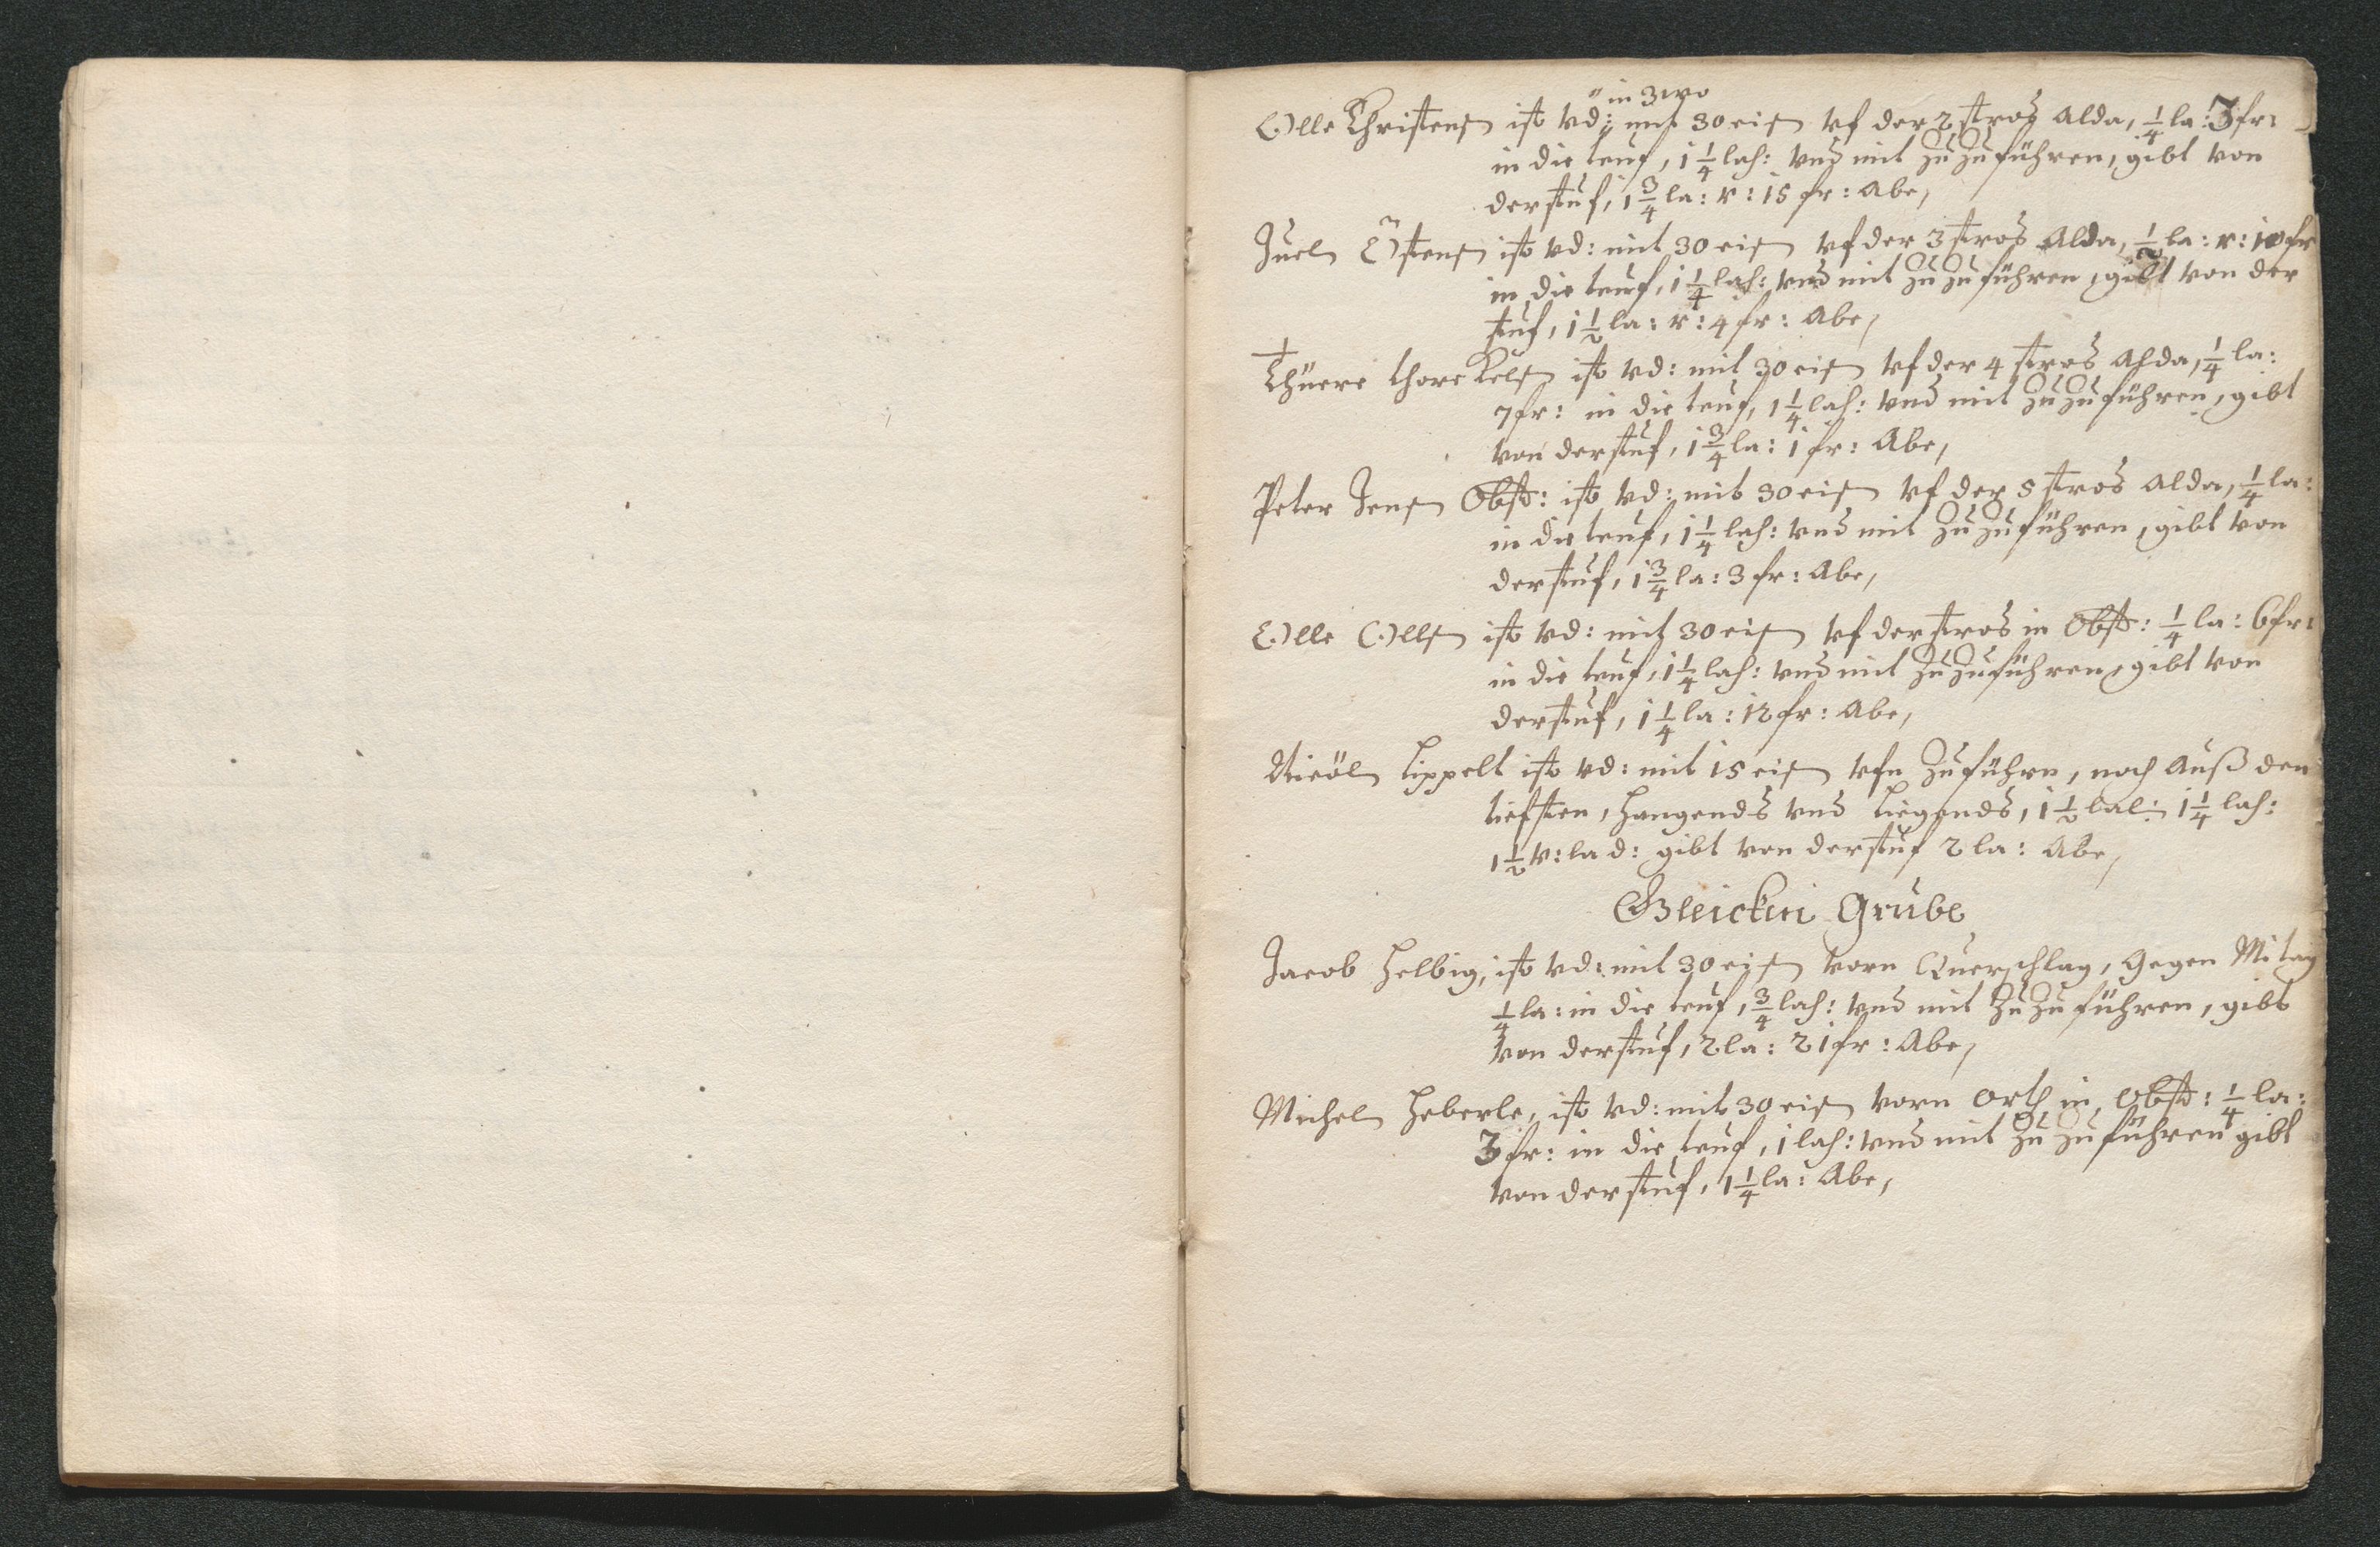 in 3 wo
Olle Christens ist vd: mit 30 eis vf der 2 stros alda, 1/4 la: 3 fr:
in die teuf, 1 1/4 lah: vnd mit zu zu führen, gibt von
der stuf, 1 3/4 la: v: 15 fr: Abe,
Juel Östens ist vd: mit 30 eis vf der 3 stros Alda, 1/2 la: v: 10 fr
in die teuf, 1 1/4 lah: vnd mit zu zu führen, gibt von der
stuf, 1 1/2 la: v: 4 fr: Abe,
Thuere thore Kels ist vd: mit 30 eis vf der 4 stros Alda, 1/4 la:
7 fr: in die teuf, 1 1/4 lah: vnd mit zu zu führen, gibt
von der stuf, 1 3/4 la: 1 fr: Abe,
Peter Jens Obst: ist vd: mit 30 eis vf der 5 stros alda, 1/4 la:
in die teuf, 1 1/4 lah: vnd mit zu zu führen, gibt von
der stuf, 1 3/4 la: 3 fr: Abe,
Olle Olls ist vd: mit 30 eis vf der stros in Obst: 1/4 la: 6 fr:
in die teuf, 1 1/4 lah: vnd mit zu zu führen, gibt von
der stuf, 1 1/4 la: 12 fr: Abe,
Nicöl Lippelt ist vd: mit 15 eis vfn zu führn, noch auß den
tiefsten, hangends vnd liegends, 1 1/2 lal: 1 1/4 lah:
1 1/2 v: lad: gibt von der stuf 2 la: Abe,
Gleickni Grube
Jacob Helbig, ist vd: mit 30 eis vorn Querschlag, Gegen Mitag
1/4 la: in die teuf, 3/4 lah: vnd mit zu zu führen, gibt
von der stuf, 2 la: 21 fr: Abe,
Michel Heberle, ist vd: mit 30 eis vorn Orth in Obst: 1/4 la:
3 fr: in die teuf, 1 lah: vnd mit zu zu führen gibt
von der stuf, 1 1/4 la: Abe,